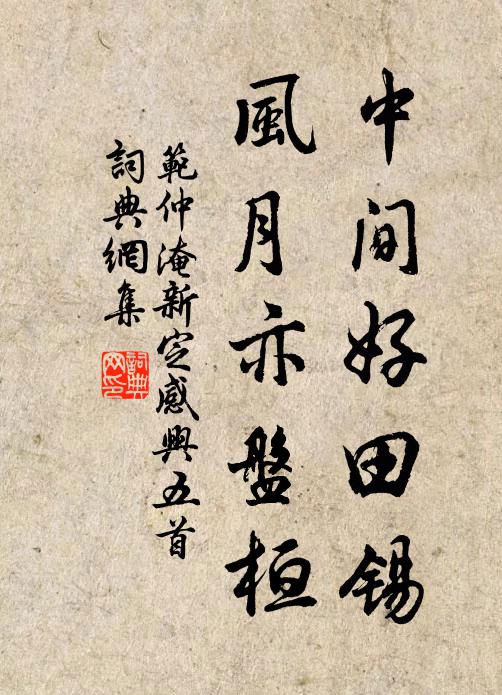 中间好田锡
風月亦盤桓
範仲淹新定感興五首
詞典網集
詞典
网印